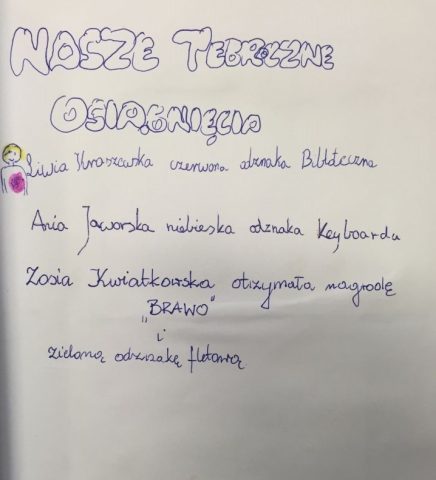 NOSZE TEBROCZNE
OSIĄGNIĘCIA
Liwia Kraszewska czerwona odznaka Biblioteczna
Ania Jaworska niebieska odznaka Keyboardu
Zosia Kwiatkowska otrzymała nagrodę
„BRAWO"
i
zieloną odznakę fletową